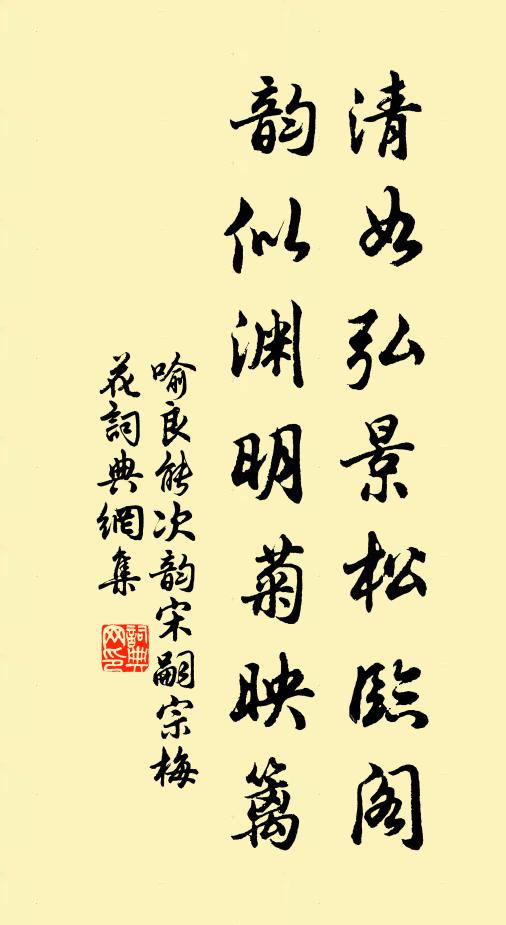 清如弘景松临阁
韵似渊明菊映篱
喻良能次韵宋嗣宗梅
花词典网集
詞典
网印